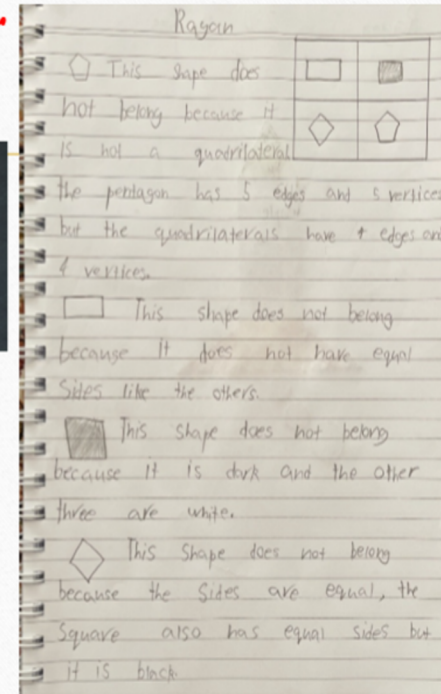 Rayan
This shape does
not belong because it
is not a quadrilateral
the pentagon has 5 edges and 5 vertices
but the quadrilaterals have 4 edges an
4 vertices.
This shape does not belong
because it does not have equal
sides like the others.
This shape does not belong
because it is dark and the other
three are white.
This shape does not belong
because the sides are equal, the
square also has equal sides but
it is black.